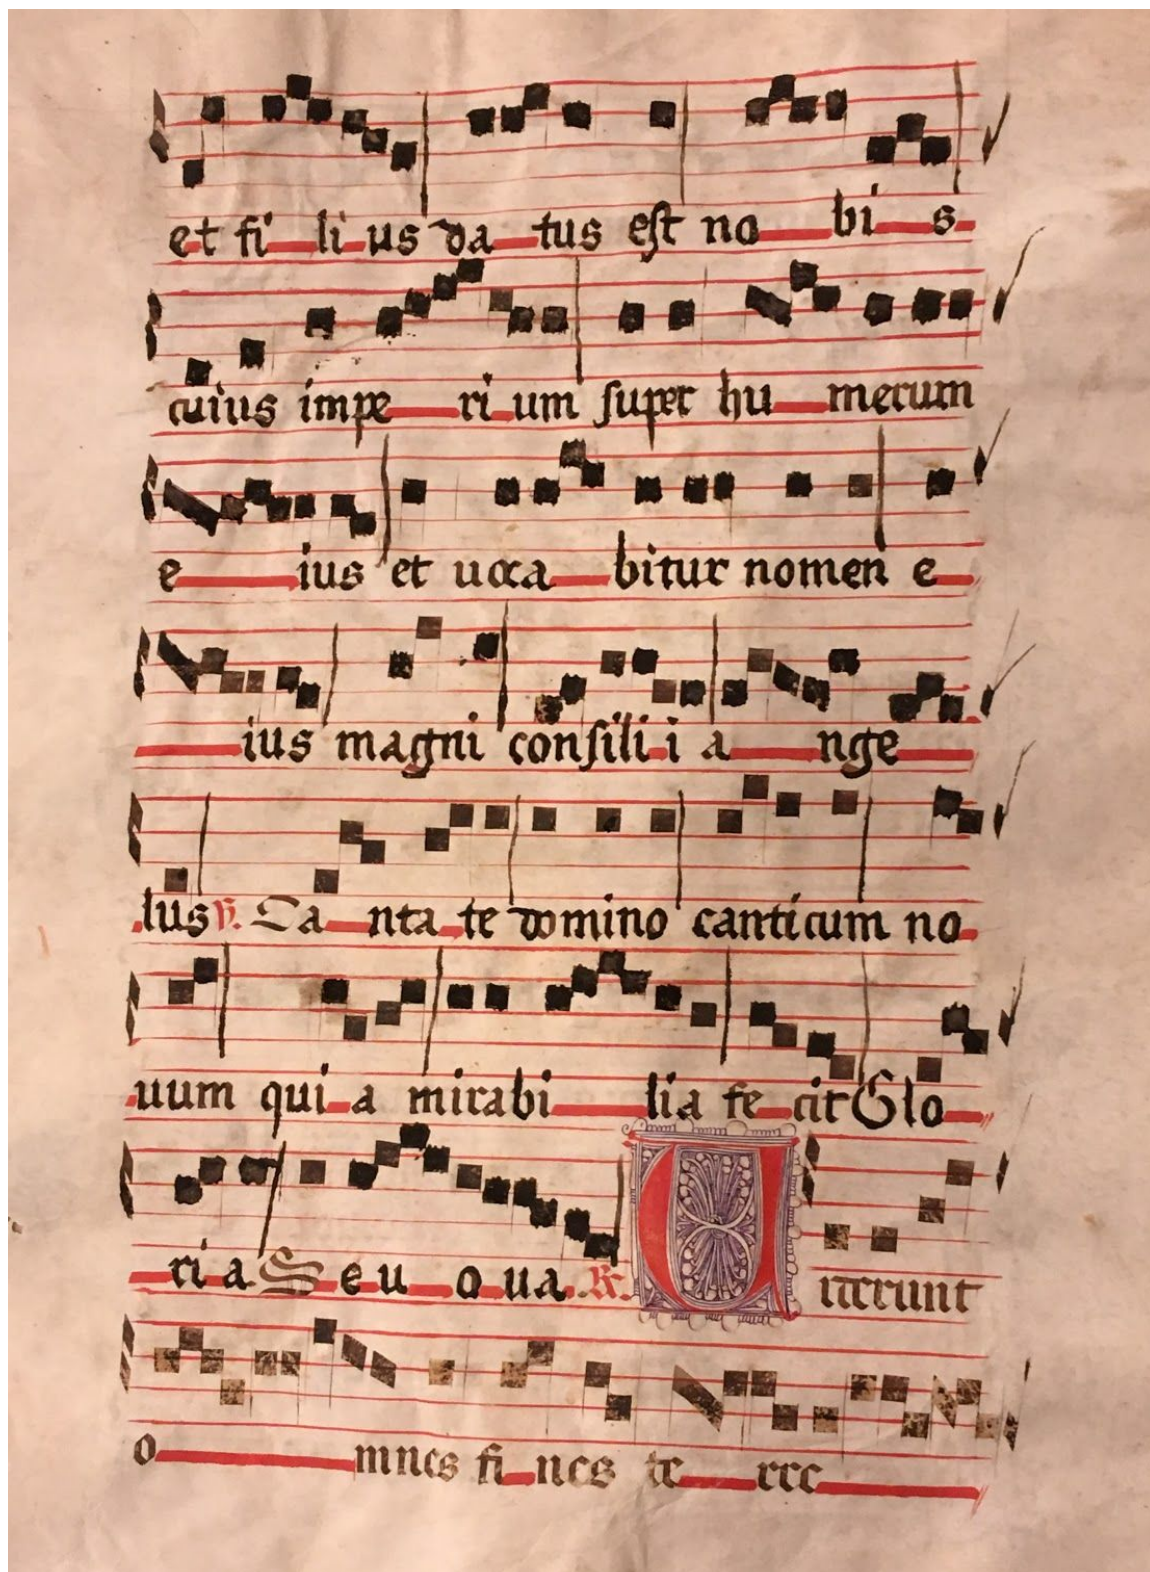 et fi li us da tus est no bi s
cuius impe ri um super hu merum
e ius et uoca bitur nomen e
ius magni consili i a nge
lus ℣. Ca nta te domino canticum no
uum qui a mirabi lia fe cit Glo
ri a Seu oua. ℟. Uiderunt
o mnes fi nes te rre